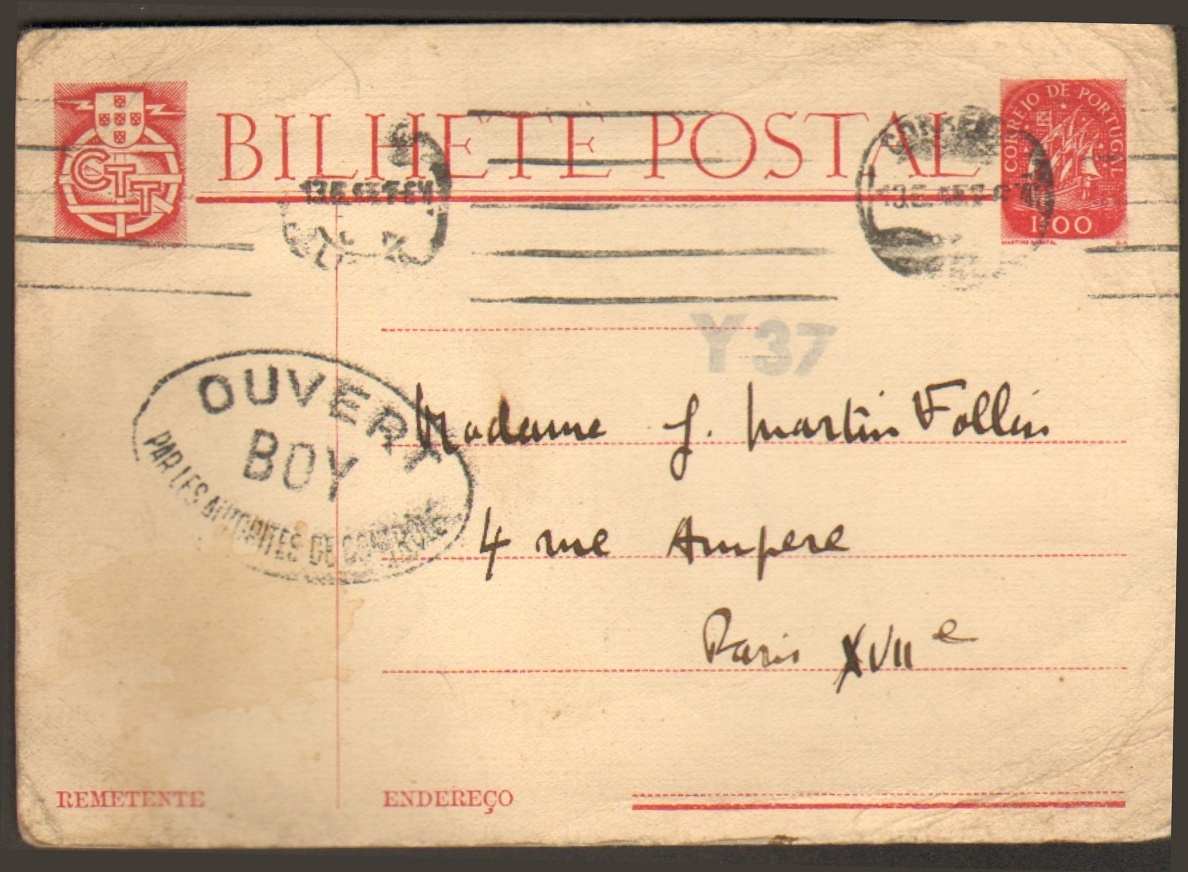 CTT
BILHETE POSTAL
CORREIO DE PORTUGAL
1$00
Y 37
OUVERT
BOY
PAR LES AUTORITES DE CONTROLE
Madame J. Martin Follin
4 rue Ampere
Paris XVIIe
REMETENTE
ENDEREÇO